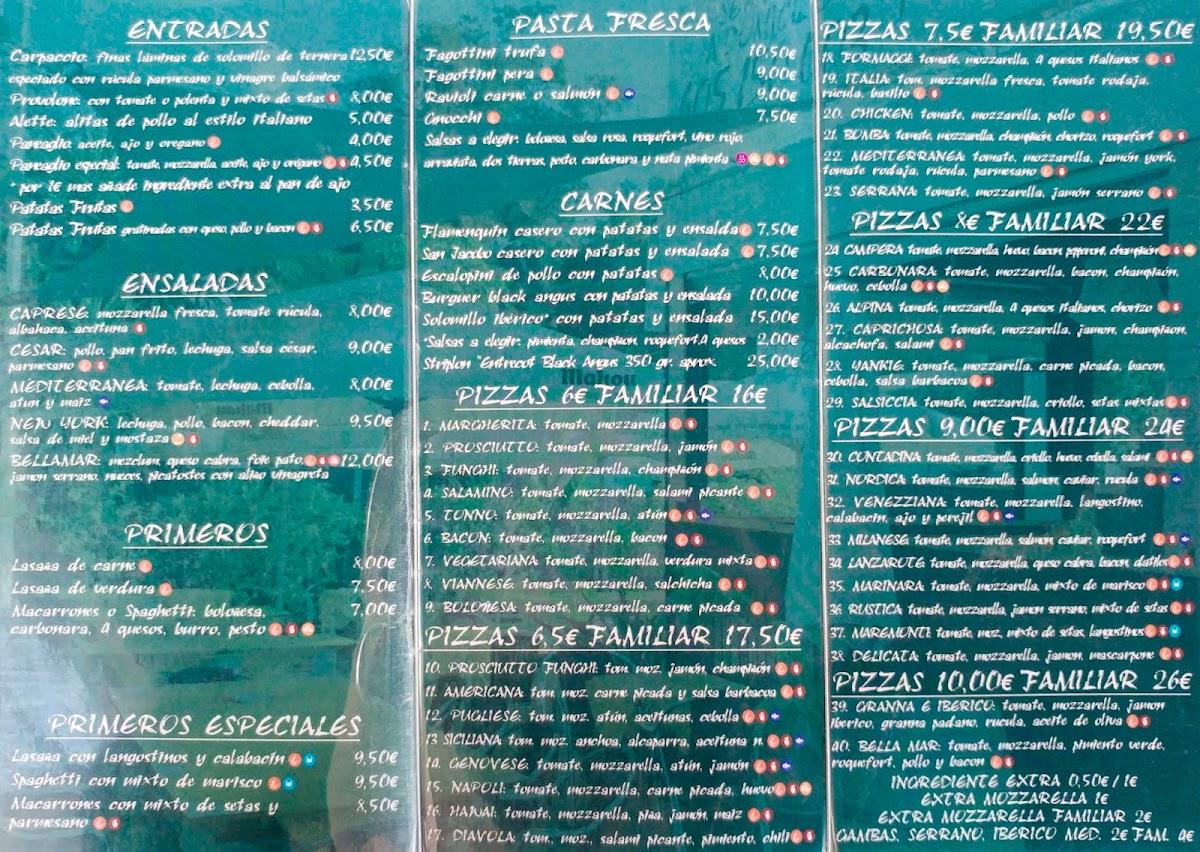 ENTRADAS
Carpaccio: finas láminas de solomillo de ternera 12,50€
especiado con rúcula parmesano y vinagre balsámico
Provolone: con tomate o polenta y mixto de setas 8,00€
Alette: alitas de pollo al estilo italiano 5,00€
Paneaglio: aceite, ajo y oregano 4,00€
Paneaglio especial: tomate, mozzarella, aceite, ajo y oregano 4,50€
* por 1€ mas añade ingrediente extra al pan de ajo
Patatas Fritas 3,50€
Patatas Fritas gratinadas con queso, pollo y bacon 6,50€
ENSALADAS
CAPRESE: mozzarella fresca, tomate rúcula, 8,00€
albahaca, aceituna
CESAR: pollo, pan frito, lechuga, salsa césar, 9,00€
parmesano
MEDITERRANEA: tomate, lechuga, cebolla, 8,00€
atun y maiz
NEW YORK: lechuga, pollo, bacon, cheddar, 9,50€
salsa de miel y mostaza
BELLAMAR: mezclum, queso cabra, foie pato, 12,00€
jamon serrano, nueces, picatostes con aliño vinagreta
PRIMEROS
Lasaña de carne 8,00€
Lasaña de verdura 7,50€
Macarrones o Spaghetti: boloñesa, 7,00€
carbonara, 4 quesos, burro, pesto
PRIMEROS ESPECIALES
Lasaña con langostinos y calabacin 9,50€
Spaghetti con mixto de marisco 9,50€
Macarrones con mixto de setas y 8,50€
parmesano
PASTA FRESCA
Fagottini trufa 10,50€
Fagottini pera 9,00€
Ravioli carne o salmón 9,00€
Gnocchi 7,50€
Salsas a elegir: boloñesa, salsa rosa, roquefort, vino rojo,
arrauiata, dos tierras, pesto, carbonara y nata pimienta
CARNES
Flamenquin casero con patatas y ensalda 7,50€
San Jacobo casero con patatas y ensalada 7,50€
Escalopini de pollo con patatas 8,00€
Burguer black angus con patatas y ensalada 10,00€
Solomillo ibérico* con patatas y ensalada 15,00€
*Salsas a elegir: pimienta, champiñon, roquefort,4 quesos 2,00€
Striplon "Entrecot Black Angus 350 gr. aprox. 25,00€
PIZZAS 6€ FAMILIAR 16€
1. MARGHERITA: tomate, mozzarella
2. PROSCIUTTO: tomate, mozzarella, jamón
3. FUNGHI: tomate, mozzarella, champiñón
4. SALAMINO: tomate, mozzarella, salami picante
5. TONNO: tomate, mozzarella, atún
6. BACON: tomate, mozzarella, bacon
7. VEGETARIANA: tomate, mozzarella, verdura mixta
8. VIANNESE: tomate, mozzarella, salchicha
9. BOLOÑESA: tomate, mozzarella, carne picada
PIZZAS 6,5€ FAMILIAR 17,50€
10. PROSCIUTTO FUNGHI: tom. moz. jamón, champiñón
11. AMERICANA: tom. moz. carne picada y salsa barbacoa
12. PUGLIESE: tom. moz. atún, aceitunas, cebolla
13 SICILIANA: tom. moz. anchoa, alcaparra, aceituna n.
14. GENOVESE: tomate, mozzarella, atún, jamón
15. NAPOLI: tomate, mozzarella, carne picada, huevo
16. HAWAI: tomate, mozzarella, piña, jamón, maiz
17. DIAVOLA: tom., moz., salami picante, pimiento, chili
PIZZAS 7,5€ FAMILIAR 19,50€
18. FORMAGGI: tomate, mozzarella, 4 quesos italianos
19. ITALIA: tom. mozzarella fresca, tomate rodaja,
rúcula, basilio
20. CHICKEN: tomate, mozzarella, pollo
21. BOMBA: tomate, mozzarella, champiñón, chorizo, roquefort
22. MEDITERRANEA: tomate, mozzarella, jamón york,
tomate rodaja, rúcula, parmesano
23. SERRANA: tomate, mozzarella, jamón serrano
PIZZAS 8€ FAMILIAR 22€
24 CAMPERA: tomate, mozzarella, huevo, bacon, peperoni, champiñón
25 CARBONARA: tomate, mozzarella, bacon, champiñón,
huevo, cebolla
26 ALPINA: tomate, mozzarella, 4 quesos italianos, chorizo
27. CAPRICHOSA: tomate, mozzarella, jamon, champiñon,
alcachofa, salami
28. YANKIE: tomate, mozzarella, carne picada, bacon,
cebolla, salsa barbacoa
29. SALSICCIA: tomate, mozzarella, criollo, setas mixtas
PIZZAS 9,00€ FAMILIAR 24€
30. CONTADINA: tomate, mozzarella, criollo, huevo, cebolla, salami
31. NORDICA: tomate, mozzarella, salmon, caviar, rucula
32. VENEZZIANA: tomate, mozzarella, langostino,
calabacin, ajo y perejil
33. MILANESE: tomate, mozzarella, salmon, caviar, roquefort
34. LANZAROTE: tomate, mozzarella, queso cabra, bacon, datiles
35. MARINARA: tomate, mozzarella, mixto de marisco
36 RUSTICA: tomate, mozzarella, jamon serrano, mixto de setas
37. MAREMONTI: tomate, moz, mixto de setas, langostinos
38. DELICATA: tomate, mozzarella, jamon, mascarpone
PIZZAS 10,00€ FAMILIAR 26€
39. GRANNA E IBERICO: tomate, mozzarella, jamon
iberico, granna padano, rucula, aceite de oliva
40. BELLA MAR: tomate, mozzarella, pimiento verde,
roquefort, pollo y bacon
INGREDIENTE EXTRA 0,50€/1€
EXTRA MOZZARELLA 1€
EXTRA MOZZARELLA FAMILIAR 2€
GAMBAS, SERRANO, IBERICO MED. 2€ FAM. 4€